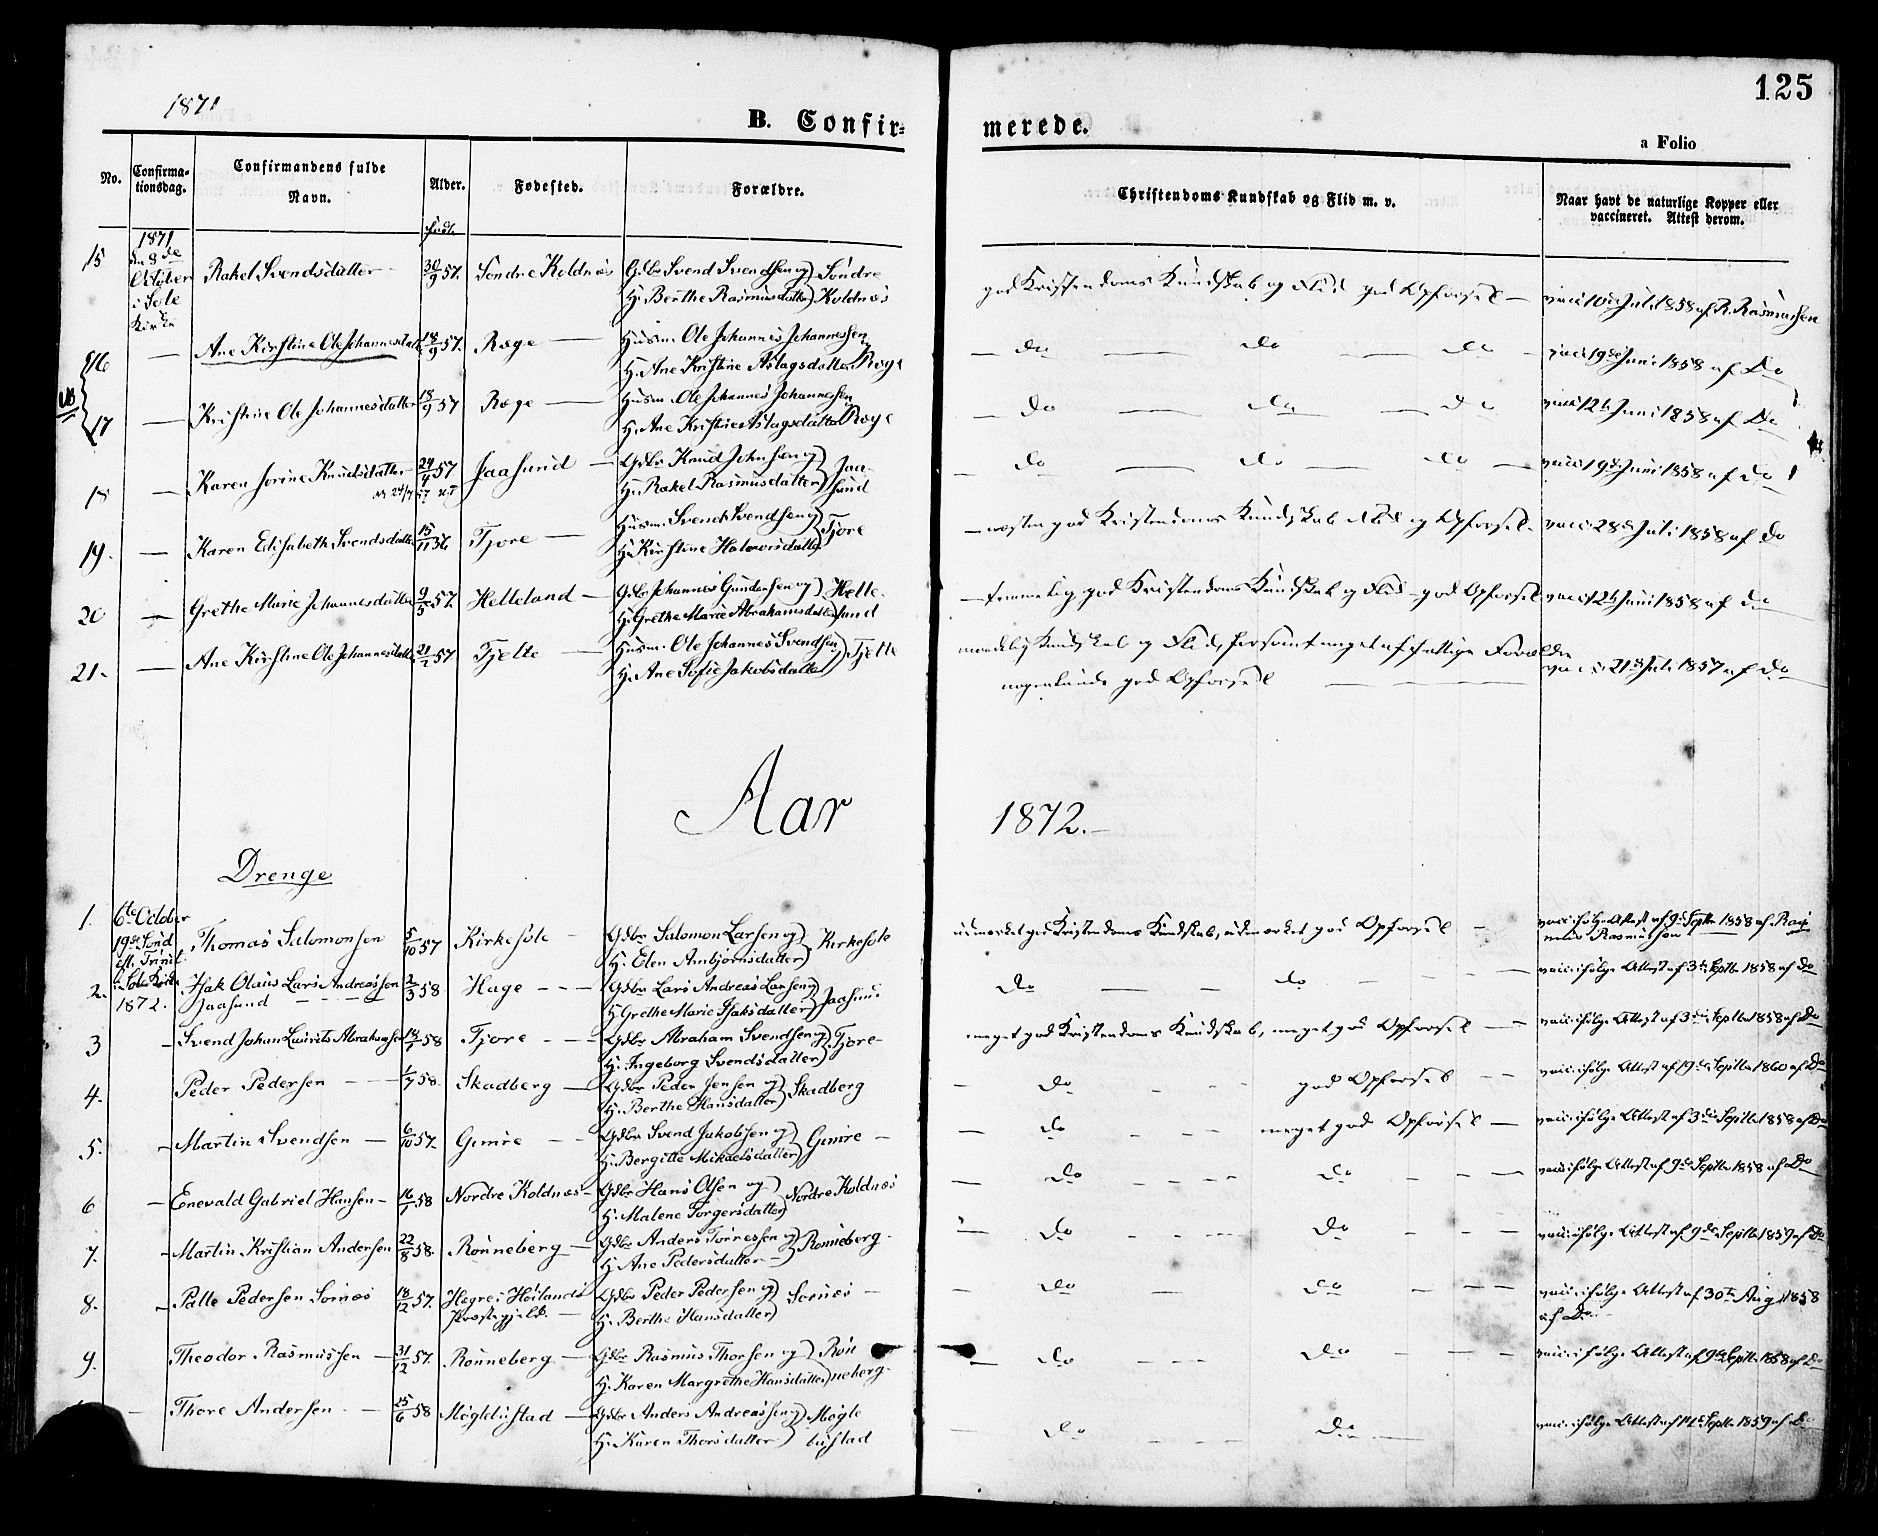 1871
125
B. Confir=
merede.
a Folio
No.
Confirma-
tionsdag.
Confirmandens fulde
Navn.
Alder.
Fødested.
Forældre.
Christendoms Kundskab og Flid m. v.
Naar havt de naturlige Kopper eller
vaccineret. Attest derom.
født.
1871
den 8de
October
i Sole
Kirke
15 Rakel Svendsdatter 30/9 57. Søndre Koldnæs Gdbr Svend Svendsen og) Søndre
H. Berthe Rasmusdatter) Koldnæs
god Kristendoms Kundskab og Flid god Opførsel — vacc 10de Juli 1858 af R. Rasmussen
16 — Ane Kirstine Ole Johannesdatter 18/9 57. Ræge — Husm. Ole Johannes Johannessen
H. Ane Kristine Aslagsdatter Ræge
— do — do — do — vacc 19de Juni 1858 af Do
17 — Kristine Ole Johannesdatter 18/9 57 Ræge — Husm. Ole Johannes Johannessen
H. Ane Kristine Aslagsdatter Ræge
— do — do — do vacc 12te Juni 1858 af Do
18 — Karen Serine Knudsdatter 24/4 57 Jaasund — Gdbr Knud Johnsen og) Jaa-
H. Rakel Rasmusdatter) sund
— do — do — do — vacc 19de Juni 1858 af do
19. — Karen Elisabeth Svendsdatter 15/11 56 Tjore — Husm. Svend Svendsen og) Tjore
H. Kirstine Halvorsdatter
— næsten god Kristendoms Kundskab Flid og Opførsel. vacc 28de Juli 1858 af Do
20 — Grethe Marie Johannesdatter 9/5 57. Helleland — Gdbr Johannes Gundersen og) Helle-
H. Grethe Marie Abrahamsdatter) land
— temmelig god Kristendoms Kundskab og Flid — god Opførsel vacc 12te Juni 1858 af do
21. — Ane Kirstine Ole Johannesdatter 21/2 57 Tjelte — Husm. Ole Johannes Svendsen) Tjelte
H. Ane Sofie Jakobsdatter
maadelig Kundskab og Flid, forsømt meget af fattige Forældre
nogenlunde god Opførsel — vacc 21de Juli 1857 af do
Aar 1872.
Drenge
6te October
19de Sønd
eft. Trinit.
i Sole Kirke
1872.
1. Thomas Salomonsen 5/10 57 Kirkesole — Gdbr Salomon Larsen og) Kirkesole
H. Elen Ambjørnsdatter)
udmærket god Kristendoms Kundskab, udmærket god Opførsel — vacc ifølge Attest af 9de Septbr 1858 af Rasmus Rasmussen
2. Isak Olaus Lars Andreassen 2/3 58 Hage — Gdbr Lars Andreas Larsen og
Jaasund H. Grethe Marie Isaksdatter) Jaasund
do — — do — vacc ifølge Attest af 3die Septbr 1858 af do
3 — Svend Johan Laurits Abrahamsen 14/1 58 Tjore — Gdbr Abraham Svendsen og) Tjore
H. Ingeborg Svendsdatter)
meget god Kristendoms Kundskab, meget god Opførsel — vacc ifølge Attest af 3die Septbr 1858 af Do
4. Peder Pedersen — 1/7 58. Skadberg — Gdbr Peder Jensen og) Skadberg
H. Berthe Hansdatter)
— do — god Opførsel — vacc ifølge Attest af 19de Septbr 1860 af Do
5. — Martin Svendsen — 6/10 57. Gimre — Gdbr Svend Jakobsen og) Gimre —
H. Bergitte Mikaelsdatter)
— do — meget god Opførsel — vacc ifølge Attest af 3die Septbr 1858 af Do
6 — Enevald Gabriel Hansen — 16/1 58 Nordre Koldnæs — Gdbr Hans Olsen og) Nordre Koldnæs
H. Malene Torgersdatter)
— do — do — vacc ifølge Attest af 9de Septbr 1858 af Do
7. — Martin Kristian Andersen 22/8 58. Rønneberg — Gdbr Anders Tørressen og) Rønneberg
H. Ane Pedersdatter —)
— do — do — vacc ifølge Attest af 9de Septbr 1859 af Do
8. — Palle Pedersen Sornæs 18/12 57. Hegre i Høilands Gdbr Peder Pedersen og) Sornæs —
Præstegjeld. — H. Berthe Hansdatter)
— do — do — vacc ifølge Attest af 30te Aug 1858
af Do
9. Theodor Rasmussen — 31/12 57. Rønneberg — Gdbr Rasmus Thorsen og) Røn
H. Karen Margrethe Hansdatter) neberg
— do — do — vacc ifølge Attest af 9de Septbr 1858 af Do
— Thore Andersen — 25/6 58 Møgleüstad — Gdbr Anders Andreassen og) Møgle
H. Karen Thorsdatter) büstad
— do — do — vacc ifølge Attest af 14de Septbr 1859 af Do